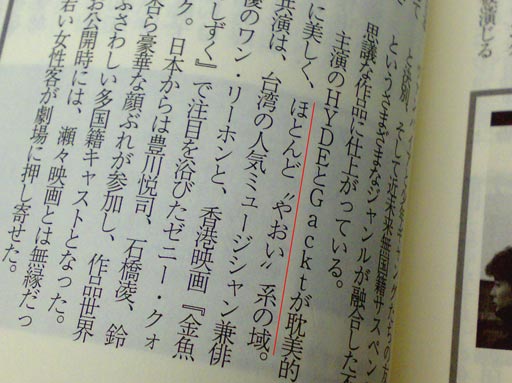 演じる
ギャングたちの
そして近未来無国籍サスペン
というさまざまなジャンルが融合した
思議な作品に仕上がっている。
主演のHYDEとGacktが耽美的
に美しく、ほとんど〝やおい〟系の域。
共演は、台湾の人気ミュージシャン兼俳
優のワン・リーホンと、香港映画『金魚
しずく』で注目を浴びたゼニー・クォ
ク。日本からは豊川悦司、石橋凌、鈴
杏ら豪華な顔ぶれが参加し、作品世界
ふさわしい多国籍キャストとなった。
お公開時には、瀬々映画とは無縁だっ
若い女性客が劇場に押し寄せた。